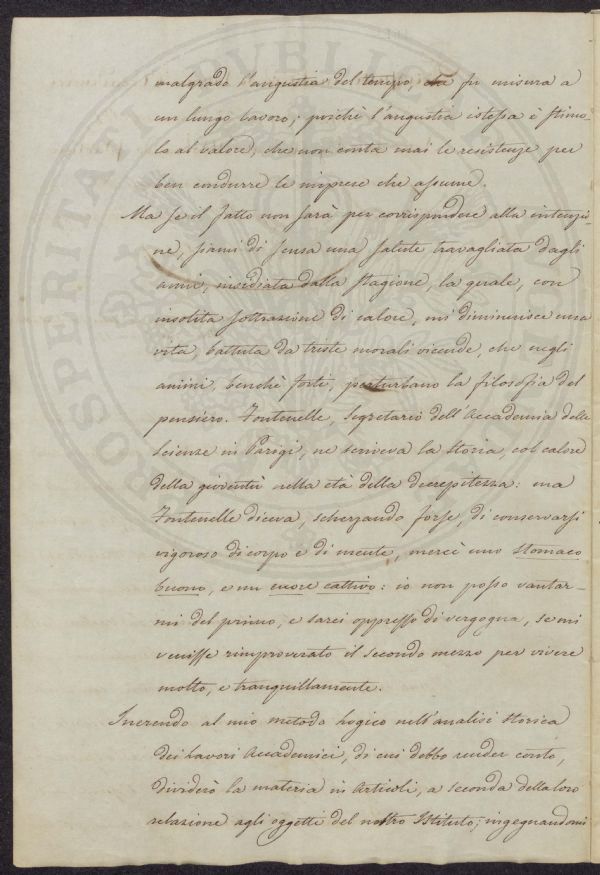 malgrado l'angustia del tempo, fu misura a
un lungo lavoro; poichè l'angustia istessa è stimo-
lo al valore, che non conta mai le resistenze per
ben condurre le imprese che assume.
Ma se il fatto non sarà per corrispondere alla intenzio-
ne, siami di scusa una salute travagliata dagli
anni, insidiata dalla stagione, la quale, con
insolita sottrazione di calore, mi diminuisce una
vita, battuta da triste morali vicende, che negli
animi, benchè forti, perturbano la filosofia del
pensiero. Fontenelle, Segretario dell'Accademia delle
Scienze in Parigi, ne scriveva la storia, col calore
della gioventù nella età della decrepitezza: ma
Fontenelle diceva, scherzando forse, di conservarsi
vigoroso di corpo e di mente, mercè uno stomaco
buono, e un cuore cattivo: io non posso vantar-
mi del primo, e sarei oppresso di vergogna, se mi
venisse rimproverato il secondo mezzo per vivere
molto, e tranquillamente.
Inerendo al mio metodo logico nell'analisi storica
dei Lavori Accademici, di cui debbo render conto,
dividerò la materia in Articoli, a seconda della loro
relazione agli oggetti del nostro Istituto; ingegnandomi